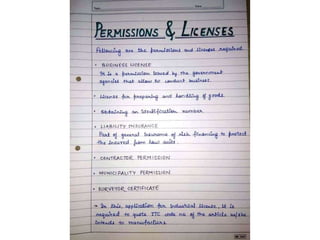 PERMISSIONS & LICENSES
Following are the permissions and licenses required
• BUSINESS LICENCE
It is a permission issued by the government
agencies that allow to conduct business.
• License for preparing and handling of goods.
• Obtaining an identification number
• LIABILITY INSURANCE
Part of general insurance of risk financing to protect
the insured from law suits.
• CONTRACTOR PERMISSION
• MUNICIPALITY PERMISSION
• SURVEYOR CERTIFICATE
→ In this, application for industrial license, it is
required to quote ITC code no of the article he/she
intends to manufacture